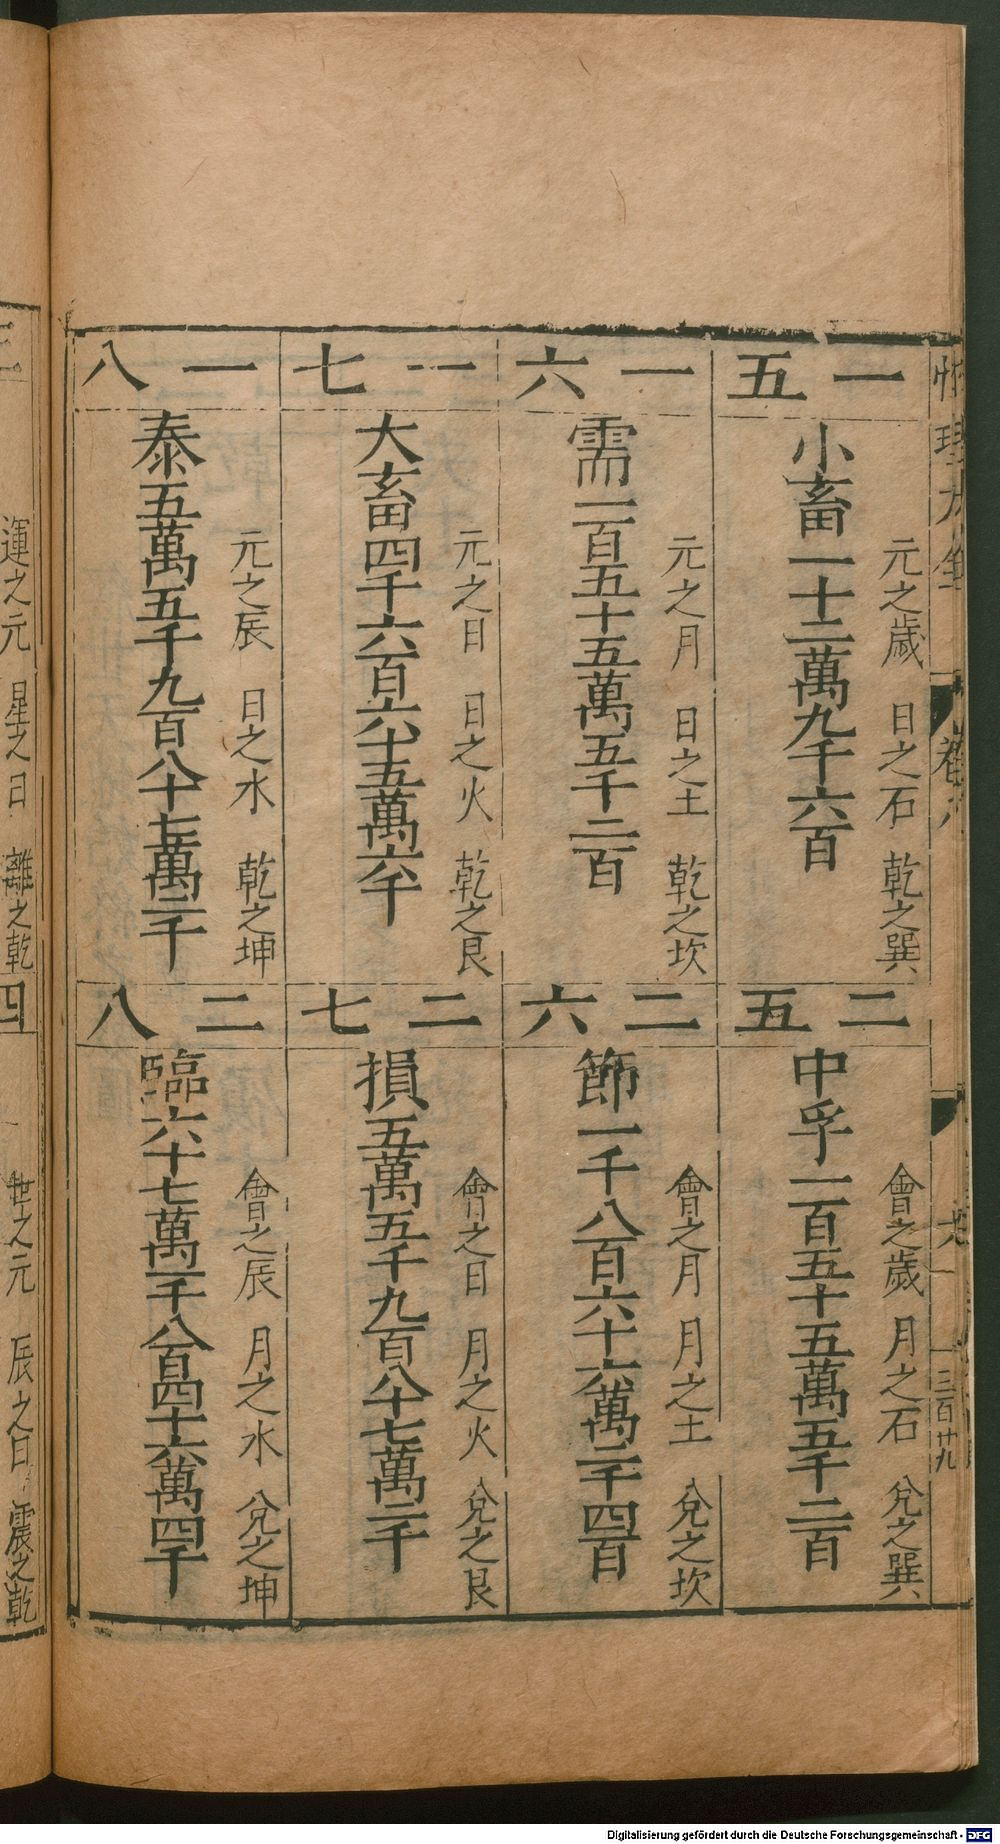 性理大全
一五
元之歲 日之石 乾之巽
小畜一十二萬九千六百
一六
元之月 日之土 乾之坎
需一百五十五萬五千二百
一七
元之日 日之火 乾之艮
大畜四千六百六十五萬六千
一八
元之辰 日之水 乾之坤
泰五萬五千九百八十七萬二千
二五
會之歲 月之石 兊之巽
中孚一百五十五萬五千二百
二六
會之月 月之土 兊之坎
節一千八百六十六萬二千四百
二七
會之日 月之火 兊之艮
損五萬五千九百八十七萬二千
二八
會之辰 月之水 兊之坤
臨六十七萬一千八百四十六萬四千
三百廿九
三
運之元 星之日 離之乾
四
世之元 辰之日 震之乾
Digitalisierung gefördert durch die Deutsche Forschungsgemeinschaft - DFG